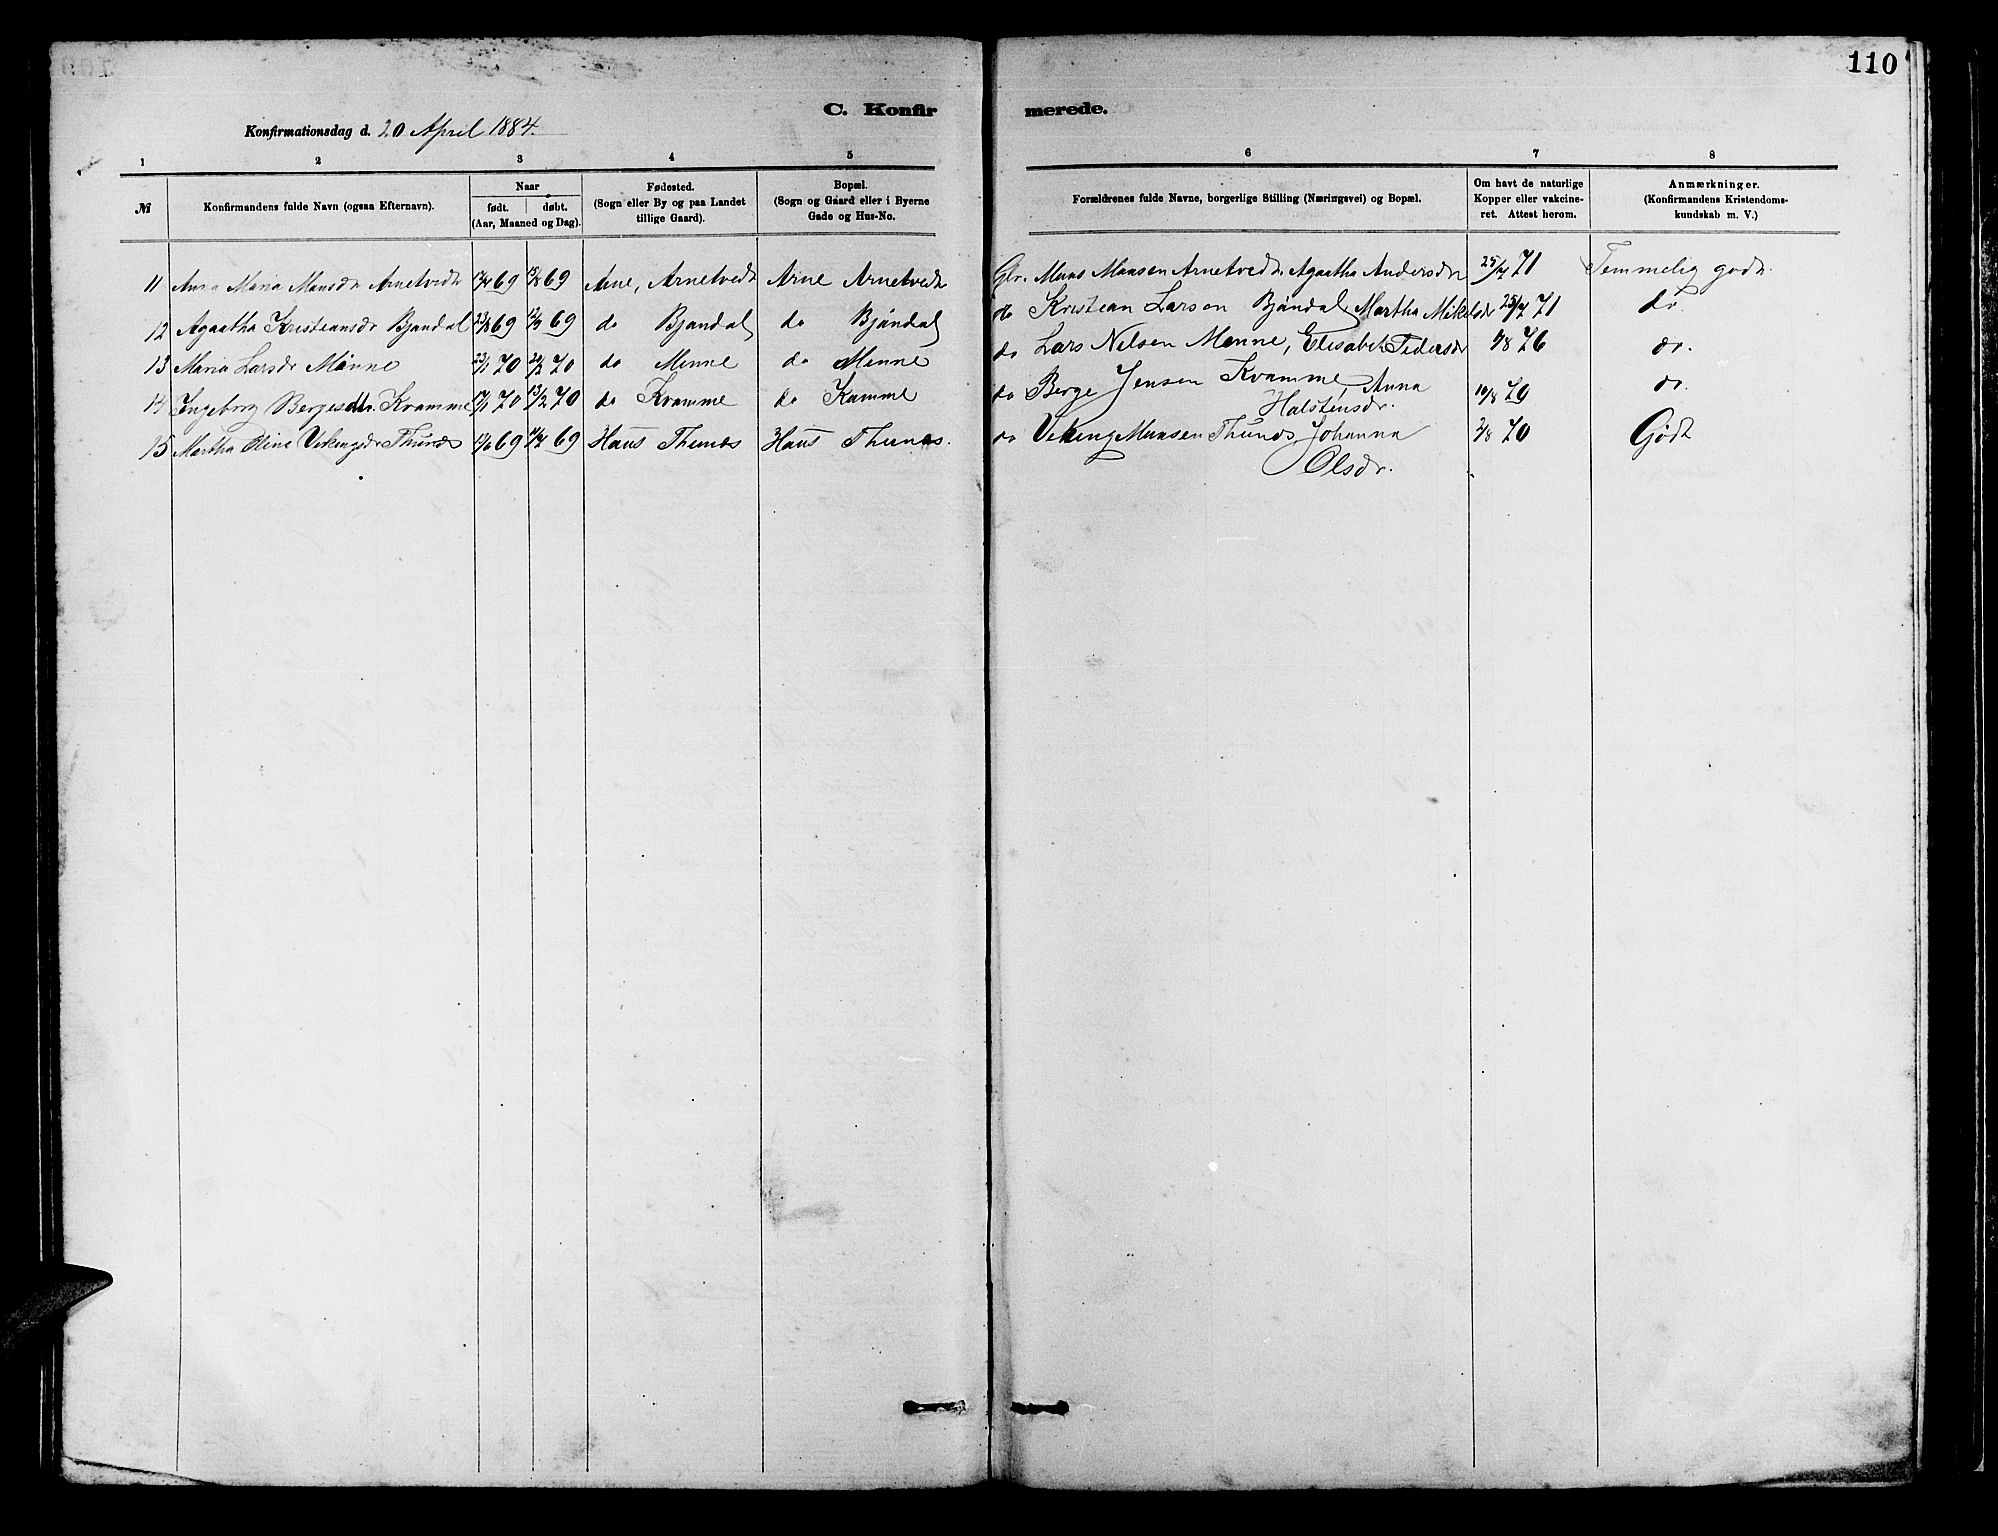 110
C. Konfirmerede.
Konfirmationsdag d. 20 April 1884.
1 2 3 4 5 6 7 8
№ Konfirmandens fulde Navn (ogsaa Efternavn). Naar født. døbt. (Aar, Maaned og Dag). Fødested. (Sogn eller By og paa Landet tillige Gaard). Bopæl. (Sogn og Gaard eller i Byerne Gade og Hus-No. Forældrenes fulde Navne, borgerlige Stilling (Næringsvei) og Bopæl. Om havt de naturlige Kopper eller vakcineret. Attest herom. Anmærkninger. (Konfirmandens Kristendomskundskab m. V.)
11 Anna Maria Mansdr Arnetvedt 69 69 Arne, Arnetvedt Arne Arnetvedt Gbr. Mans Mansen Arnetvedt. Agaatha Andersdr 25/7 71 Temmelig godt.
12 Agaatha Kristeansdr Bjøndal 23/8 69 12/9 69 do Bjøndal do Bjøndal do Kristean Larsen Bjøndal, Martha Mikelsdr 25/7 71 do.
13 Maria Larsdr Mønne 23/1 70 70 do Menne do Menne do Lars Nelsen Menne, Elisabet Pedersdr 76 do.
14 Ingeborg Bergesdtr. Kvamme 70 13/2 70 do Kvamme do Kamme do Berge Jensen Kvamme, Anna 10/8 do.
Halstensdr.
15 Martha Oline Vekingsdr Thunæs 69 69 Haus Thunæs Haus Thunæs. do Veking Mansen Thunæs, Johanna 2/8 70 Godt
Olsdr.